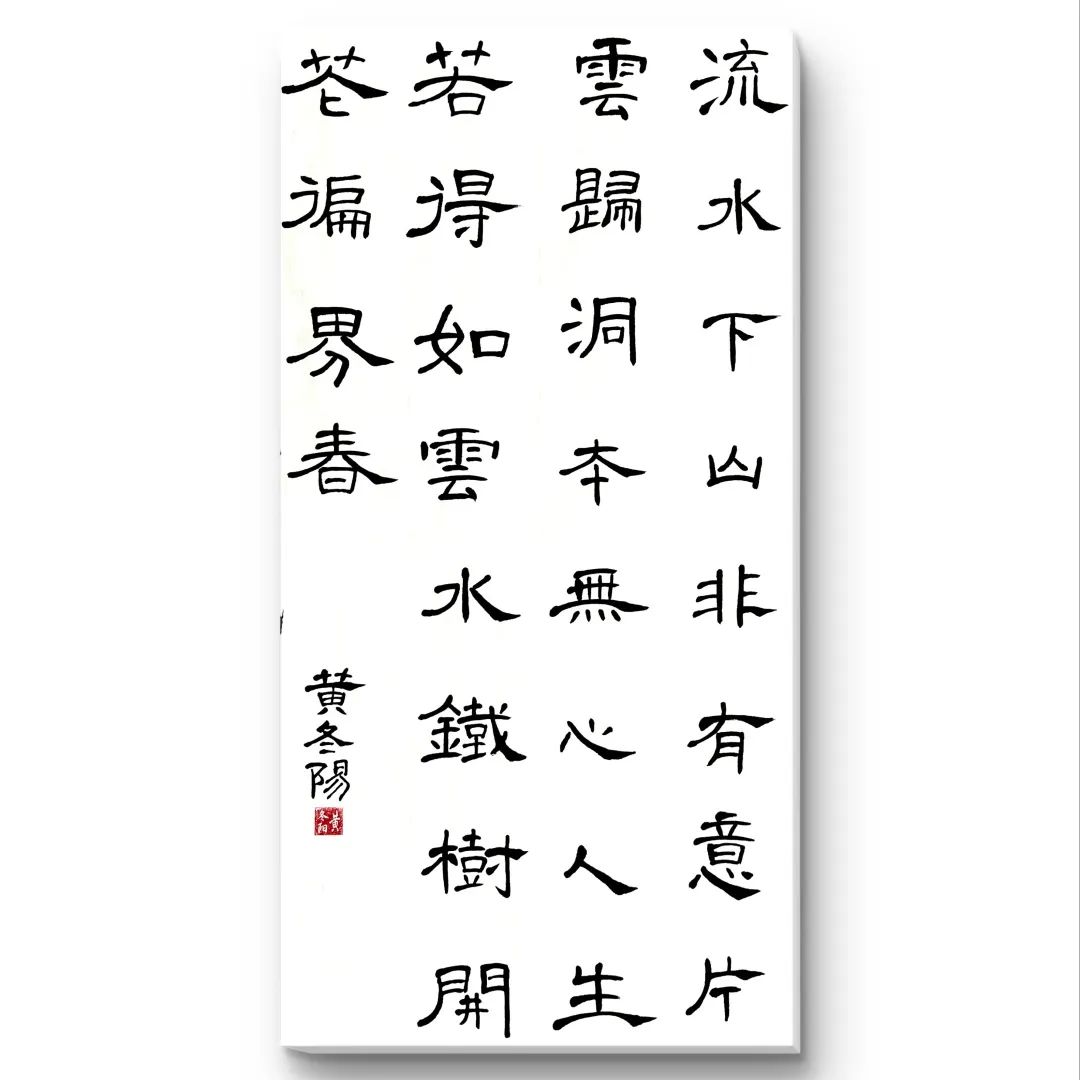 流水下山非有意片
雲歸洞本無心人生
若得如雲水鐵樹開
花遍界春
黄冬陽
黄冬阳